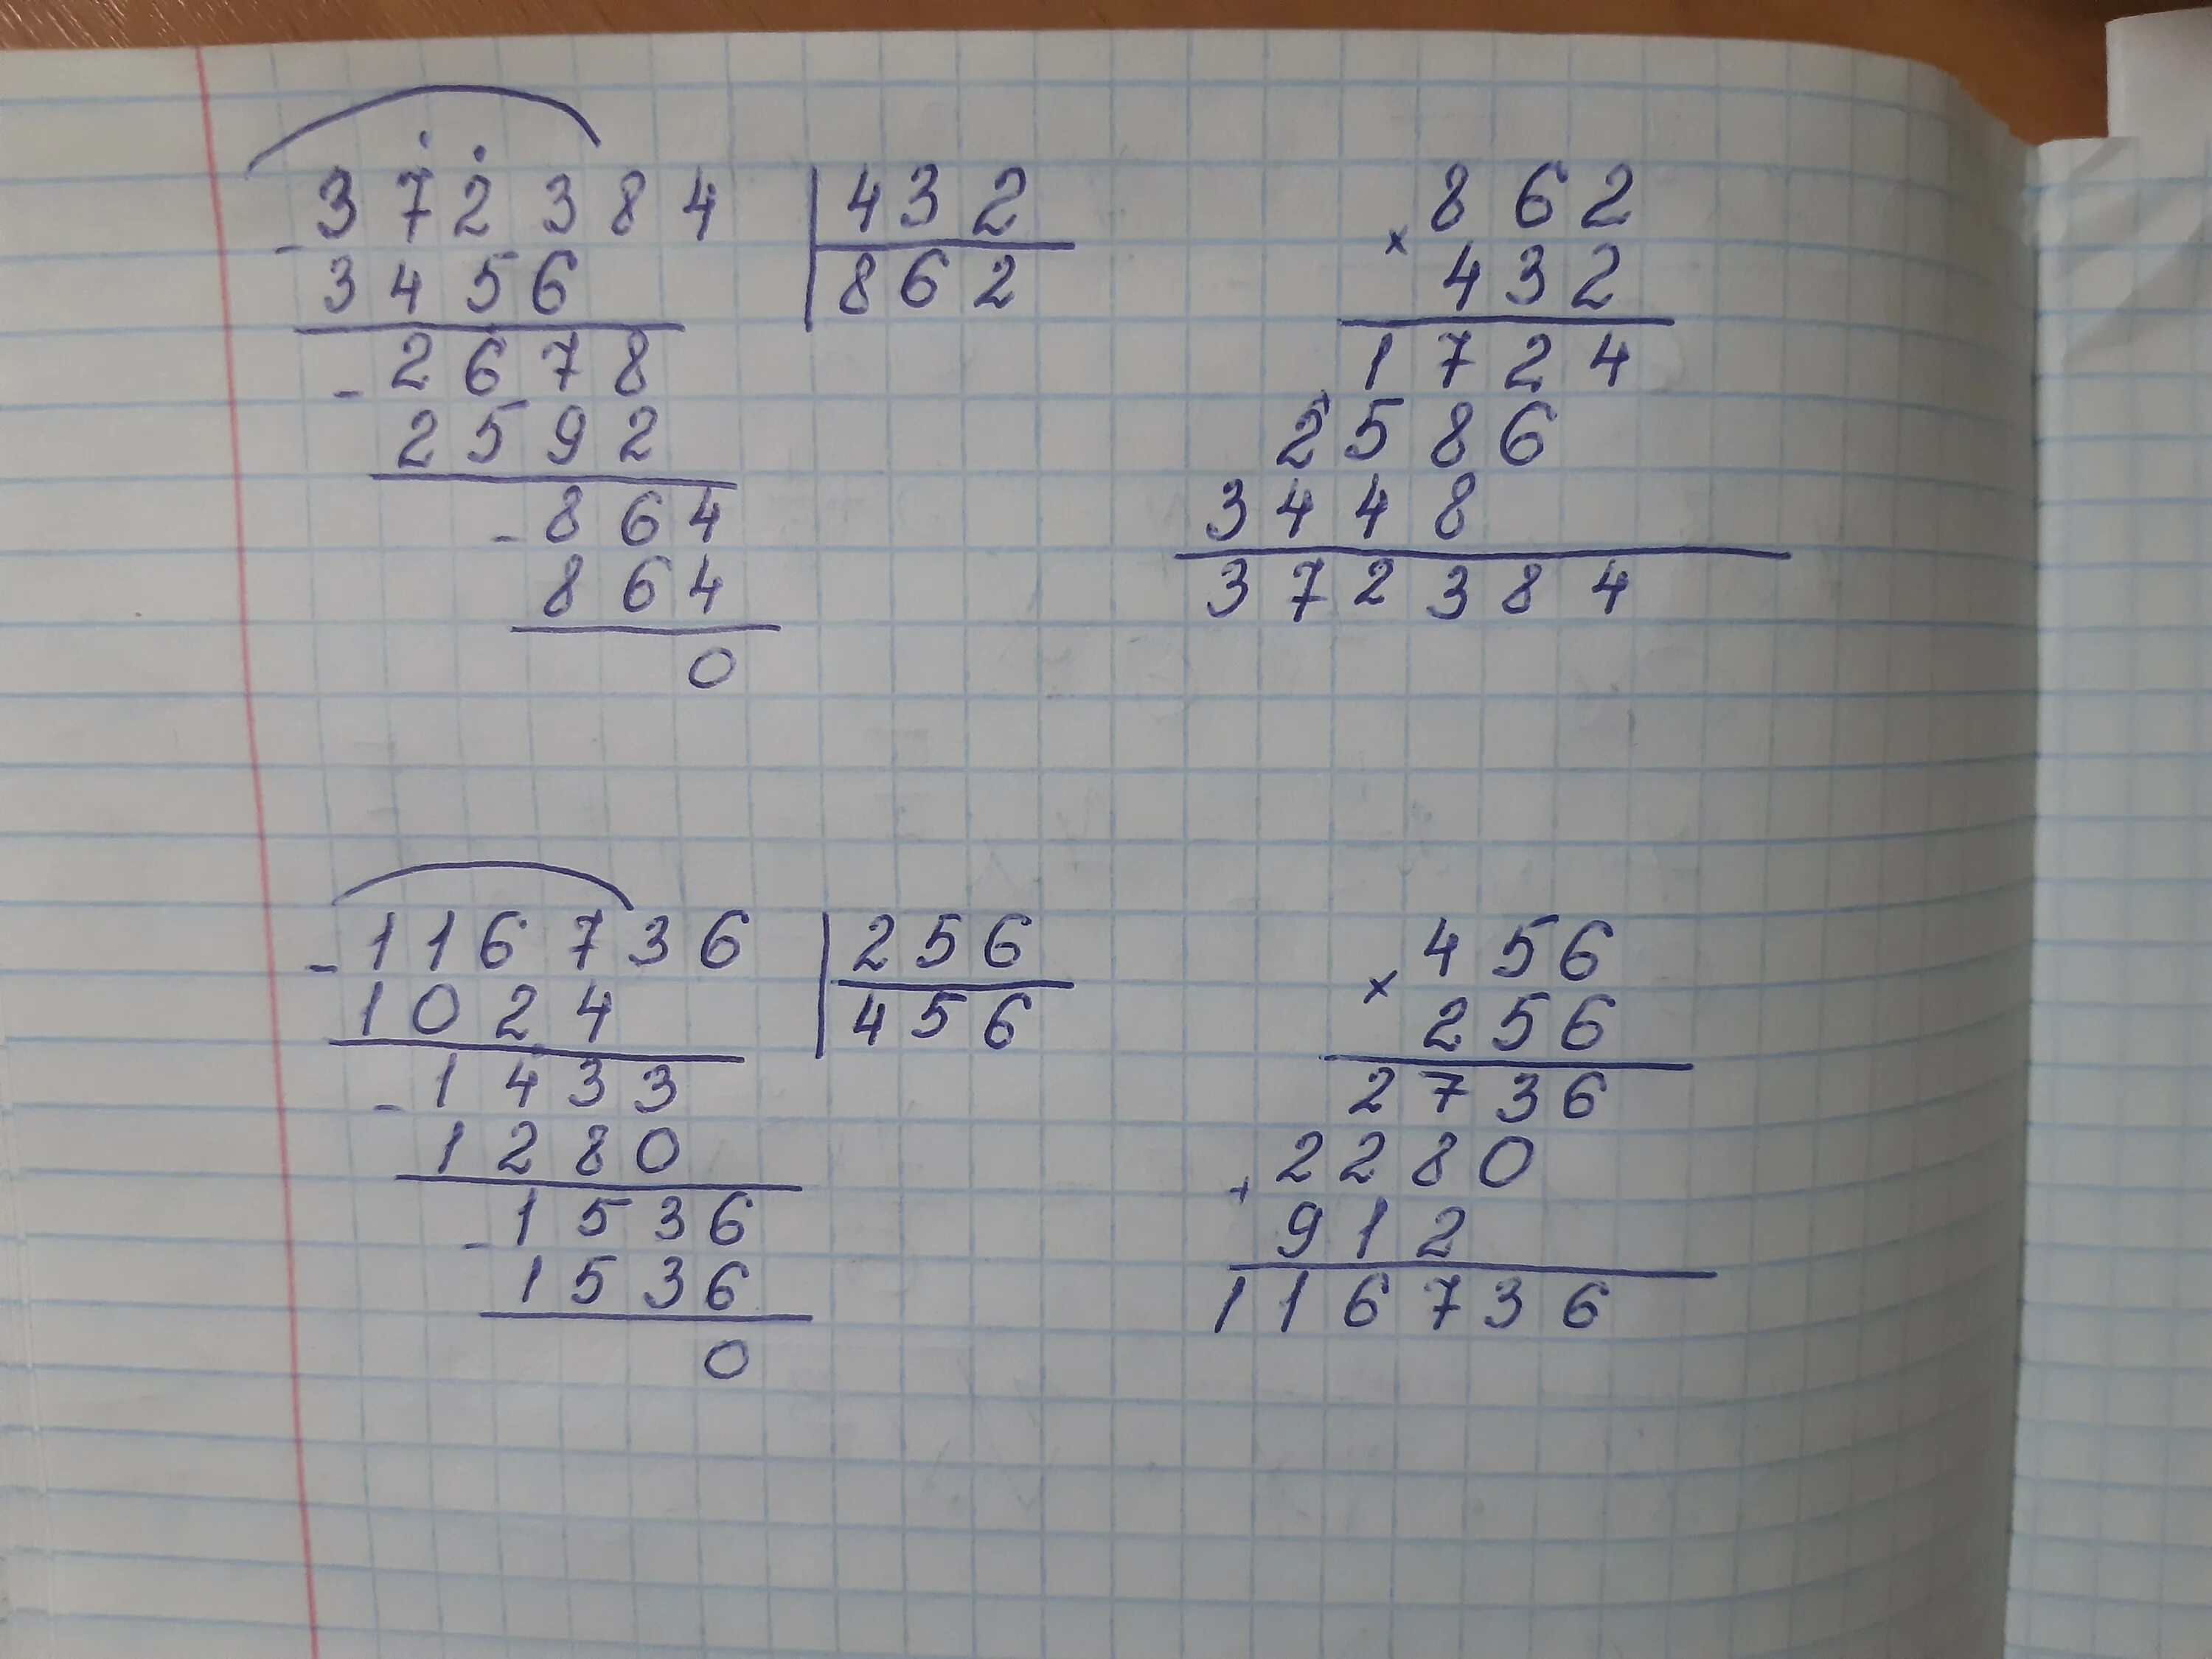 372384 | 432
- 3456 | 862
- 2678
2592
- 864
864
0
862
× 432
1724
2586
3448
372384
- 116736 | 256
1024 | 456
- 1433
1280
- 1536
1536
0
456
× 256
2736
+ 2280
912
116736